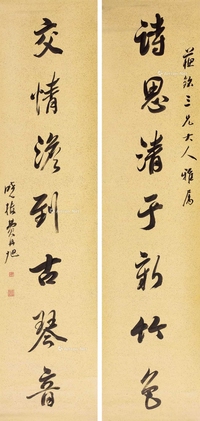 蘓銘三兄大人雅属
诗思清于新竹色
交情澹到古琴音
晓楼费丹旭